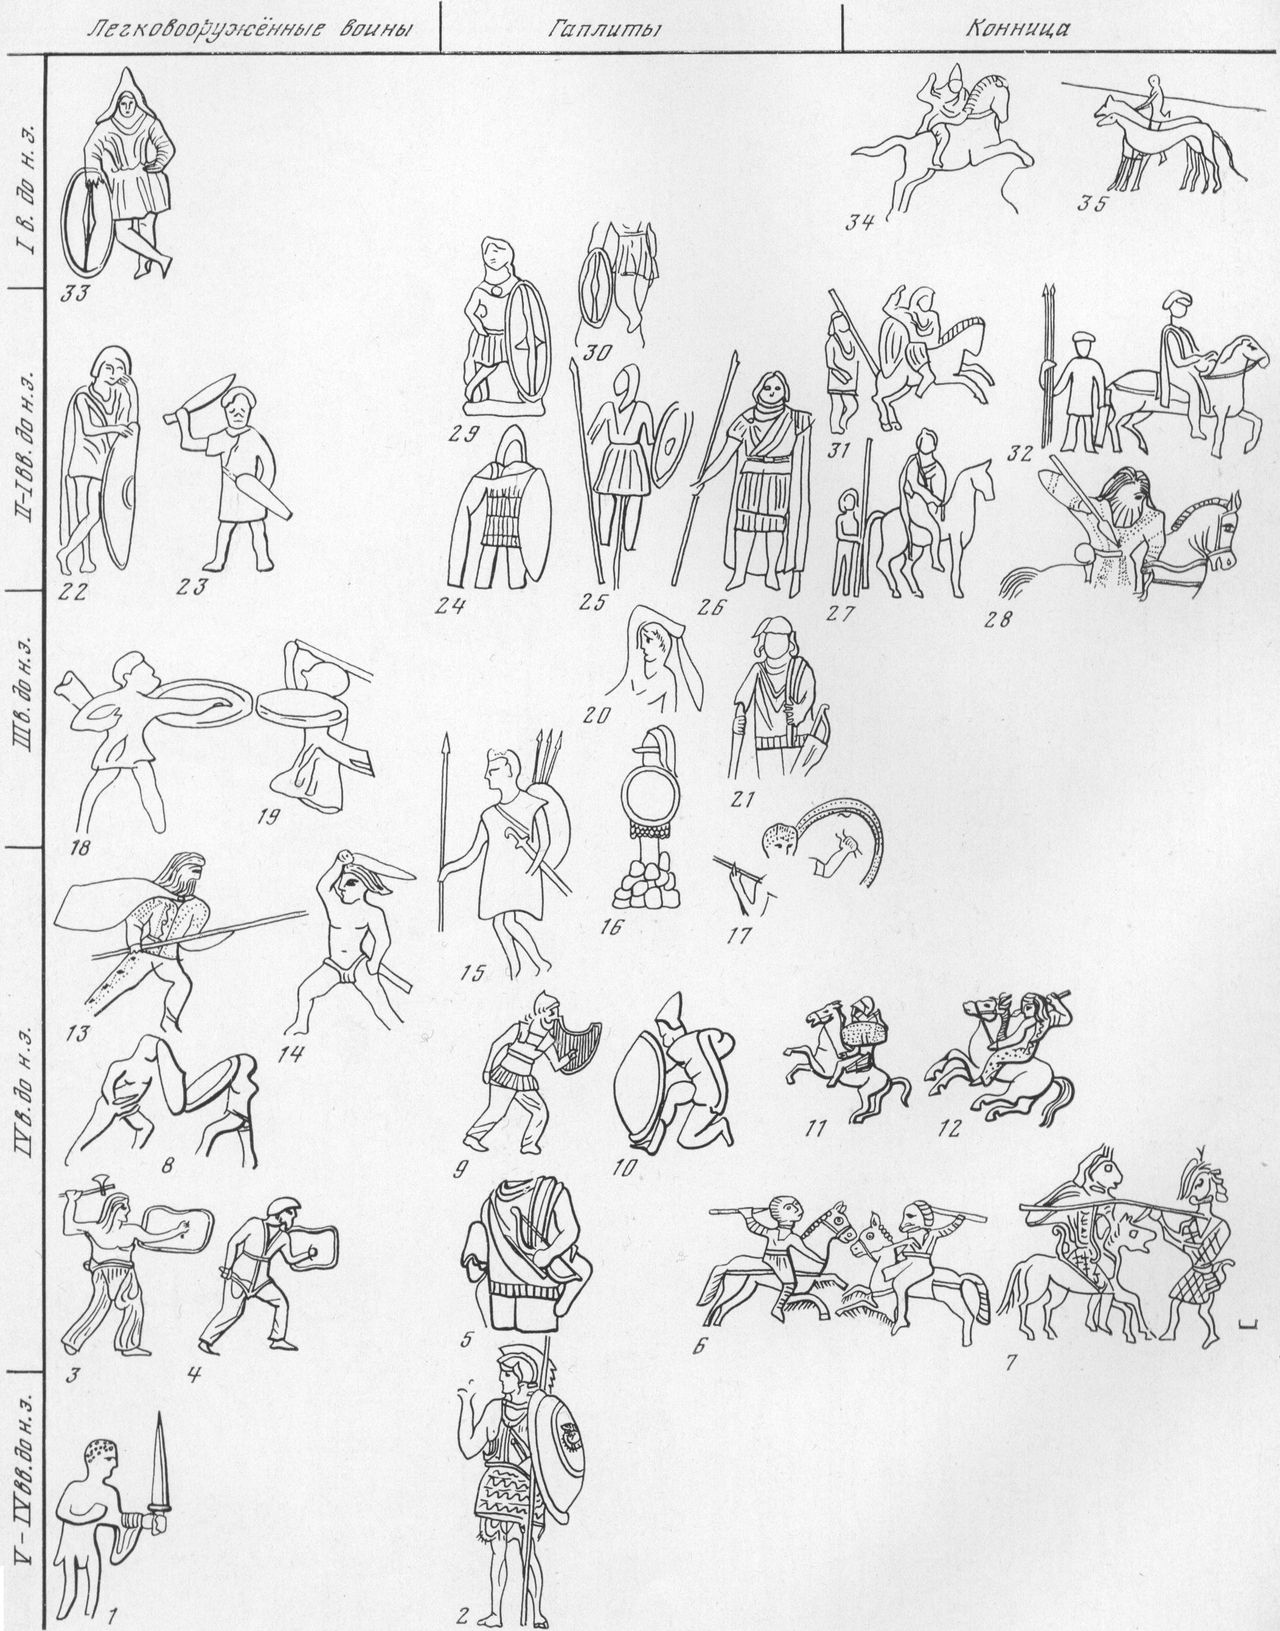 Легковооружённые воины
Гаплиты
Конница
I в. до н. э.
34
35
33
II-I вв. до н.э.
30
29
31
32
22
23
24
25
26
27
28
III в. до н.э.
20
21
18
19
16
17
15
IV в. до н. э.
13
14
11
12
8
9
10
3
4
5
6
7
V-IV вв. до н.э.
1
2